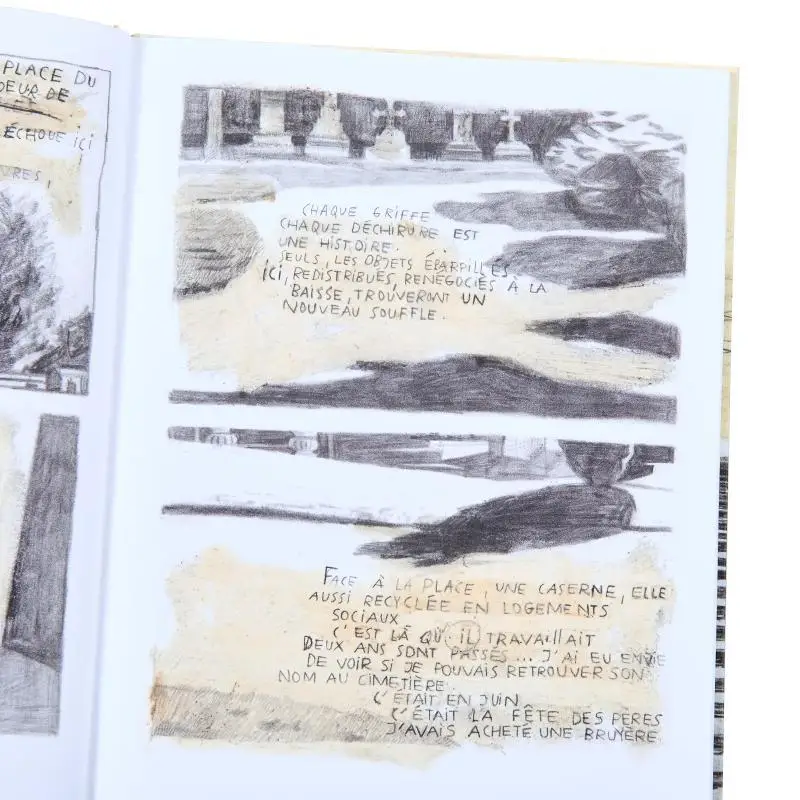 PLACE DU
ŒUR DE
ÉCHOUE ici
VRES,
CHAQUE GRIFFE
CHAQUE DÉCHIRURE EST
UNE HISTOIRE.
SEULS, LES OBJETS ÉPARPILLÉS
ici, REDISTRIBUÉS, RENÉGOCIÉS À LA
BAISSE, TROUVERONT UN
NOUVEAU SOUFFLE.
FACE À LA PLACE, UNE CASERNE, ELLE
AUSSI RECYCLÉE EN LOGEMENTS
SOCIAUX
C'EST LÀ QU'IL TRAVAillAIT
DEUX ANS SONT PASSÉS... J'AI EU ENVIE
DE VOIR SI JE POUVAIS RETROUVER SON
NOM AU CIMETIÈRE.
C'ÉTAIT EN JUIN
C'ÉTAIT LA FÊTE DES PÈRES
J'AVAIS ACHETÉ UNE BRUYÈRE